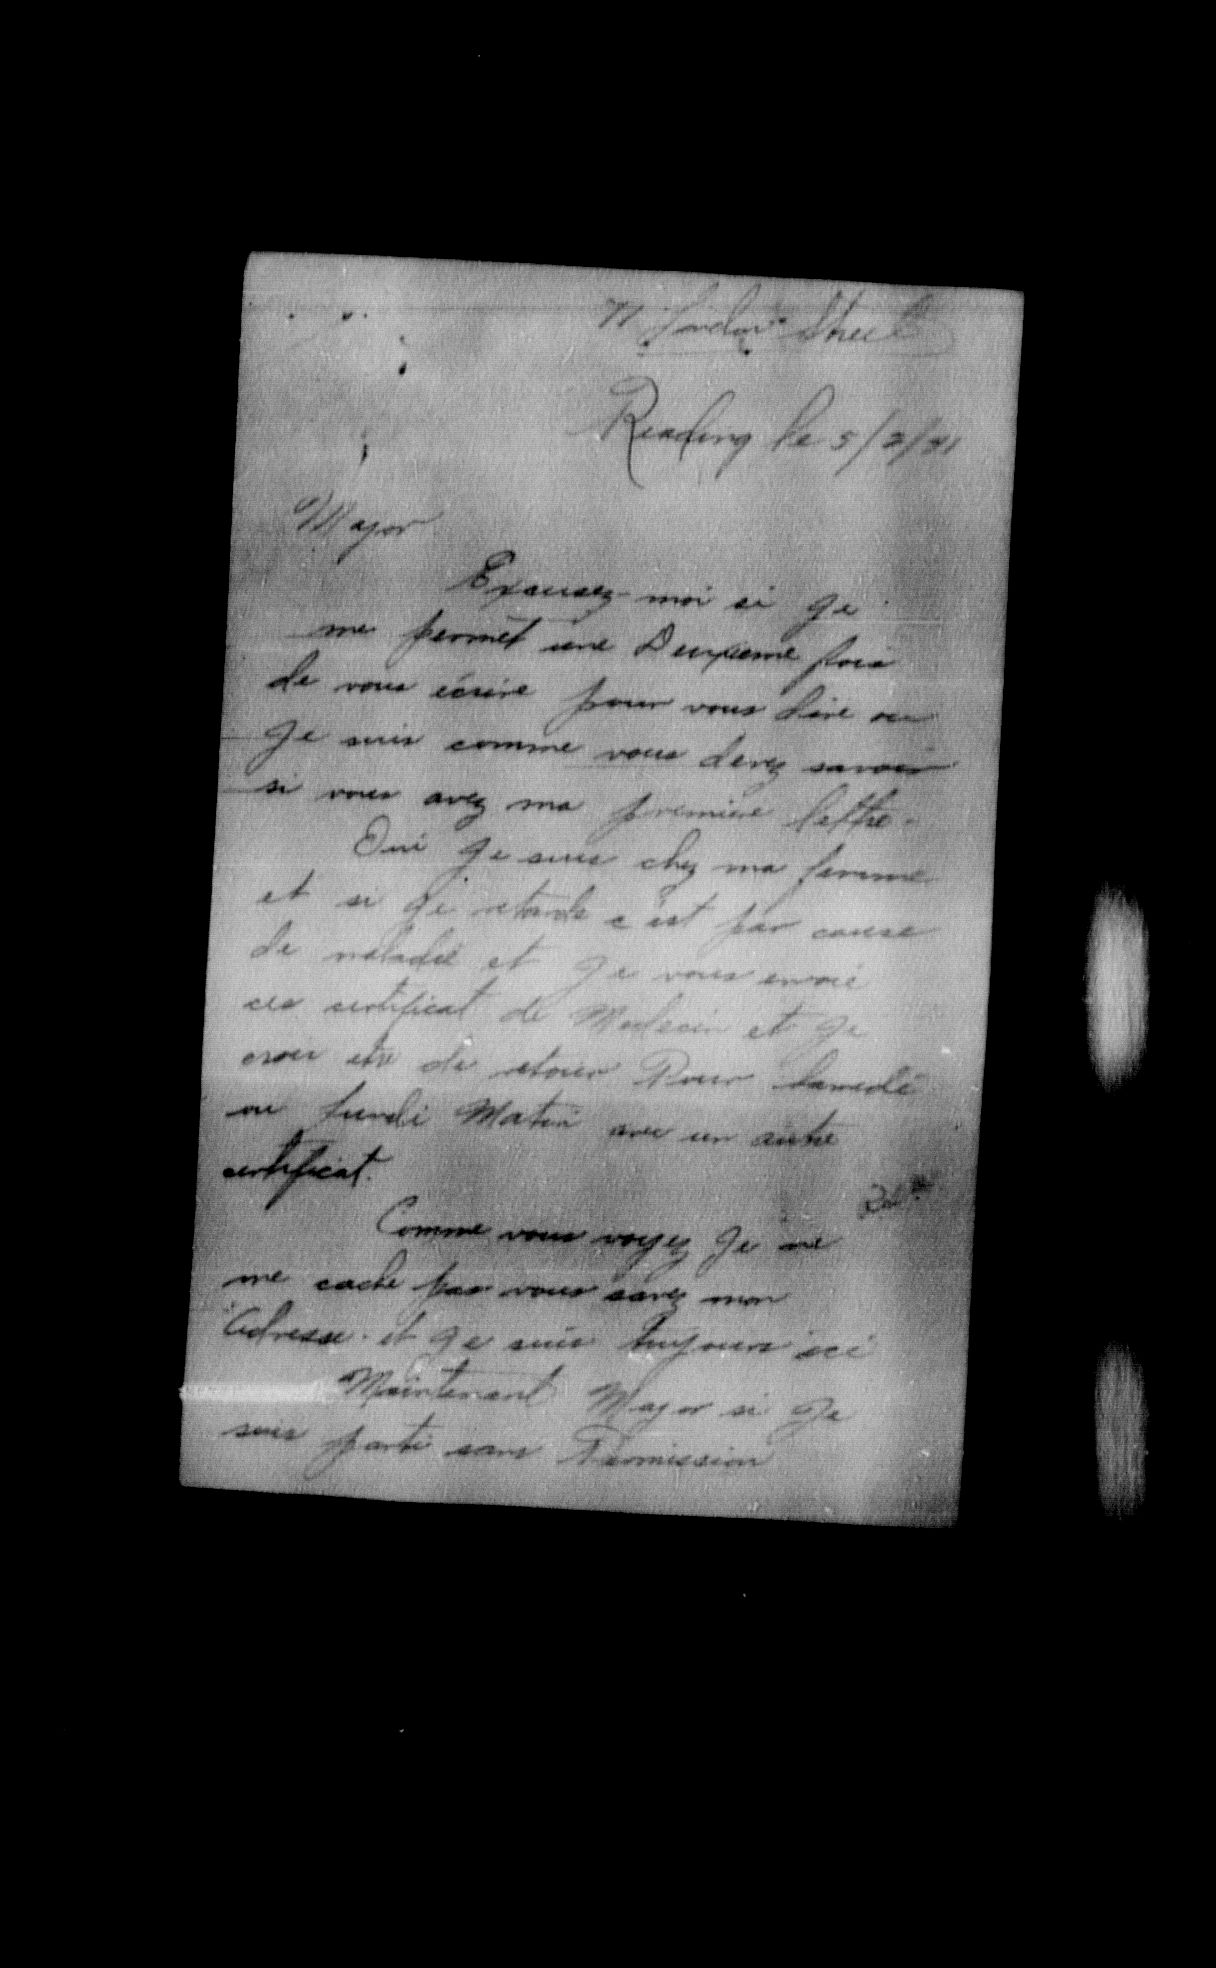 London Street
Reading le 5/2/41
Major
Excusez-moi si Je
me permêt une Deuxieme fois
de vous écrire pour vous dire ou
Je suis comme vous devez savoir
si vous avez ma premiere lettre.
Oui Je suis chez ma femme
et si Je retards c'est par cause
de maladie et Je vous envoie
ces certificat de Medecin et Je
crois etre de retour Pour Samedi
ou Lundi Matin avec un autre
certificat.
Comme vous voyez Je ne
me cache pas vous savez mon
Adresse. et Je suis tujours ici
Maintenant Major si Je
suis parti sans Permission